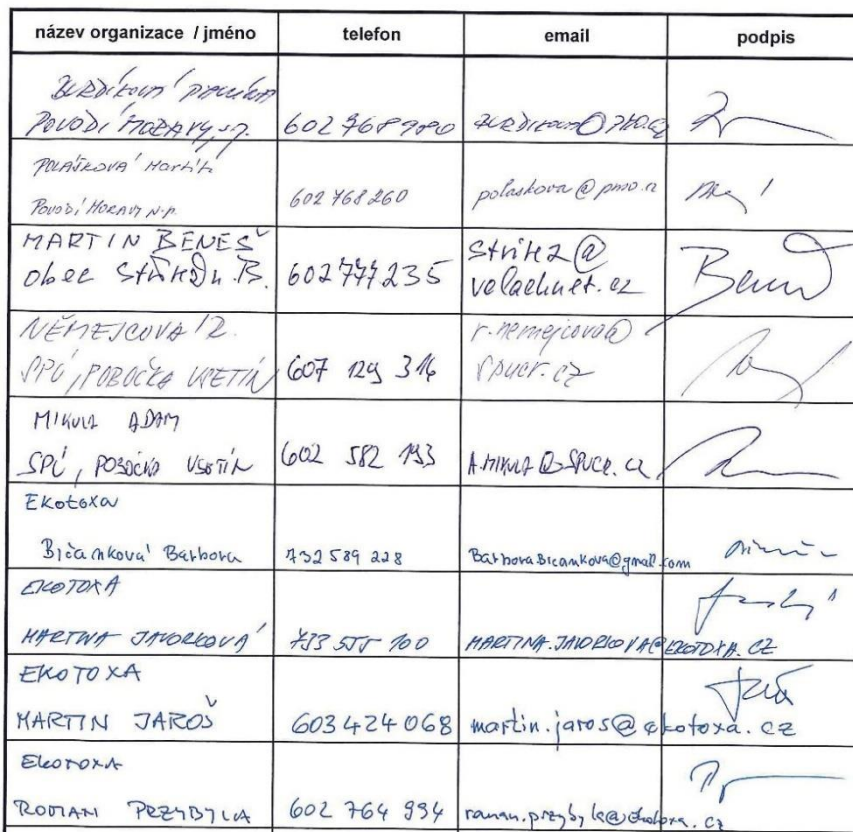 název organizace / jméno telefon email podpis
POVODÍ MORAVY, s.p. 602 768 980
POLÁŠKOVÁ
POVODÍ MORAVY 602 768 260 polaskova@pmo.cz
MARTIN BENEŠ
obec 602 777 235
NĚMEJCOVÁ R. r.nemejcova@
SPÚ, POBOČKA VSETÍN 607 129 316 spucr.cz
MIKULA ADAM
SPÚ, POBOČKA VSETÍN 602 582 193 A.MIKULA@SPUCR.CZ
Ekotoxa
Bičanková Barbora 732 589 228 BarboraBicankova@gmail.com
EKOTOXA
MARTINA JAVORKOVÁ 733 555 100 MARTINA.JAVORKOVA@EKOTOXA.CZ
EKOTOXA
MARTIN JAROŠ 603 424 068 martin.jaros@ekotoxa.cz
EKOTOXA
ROMAN PRZYBYLA 602 764 994 roman.przybyla@ekotoxa.cz